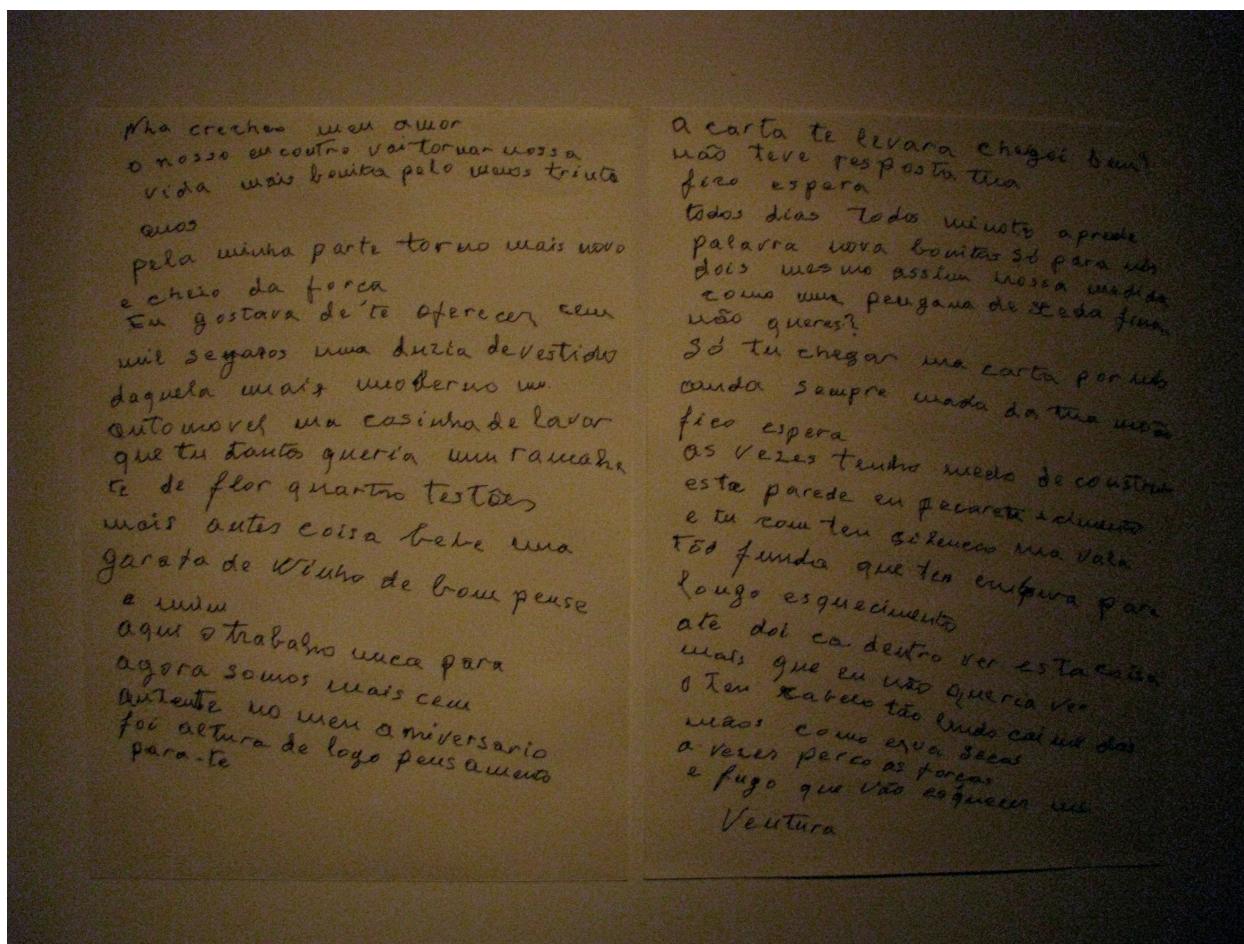 Nha crecheo meu amor
o nosso encontro vai tornar nossa
vida mais bonita pelo menos trinta
anos
pela minha parte torno mais novo
e cheio da força
Eu gostava de te oferecer cem
mil segaros uma duzia de vestido
daquela mais moderno um
automovel ma casinha de lavar
que tu tantos queria um ramalha
te de flor quartro testões
mais antes coisa bebe uma
garafa de Vinho de bom pense
e mim
aqui o trabalho nuca para
agora somos mais cem
anteonte no meu aniversario
foi altura de logo pensamento
para-te
A carta te levara chegoi bem?
não teve resposta tua
fico espera
todos dias todos minoto aprede
palavra nova bonitas Só para nós
dois mesmo assim nossa medida
como um peugana de seda fina
não queres?
Só tu chegar ma carta por nós
ainda sempre nada da tua mão
fico espera
as vezes tenho medo de construir
esta parede eu pecareta cimento
e tu com teu silencio ma vala
tão funda que teu empura para
longo esquecimento
até doi ca dentro ver esta coisa
mais que eu não queria ver
o teu cabelo tão lindo cai me das
mãos como erva secas
a vezes perco as forças
e fugo que vão esquecer me
Ventura